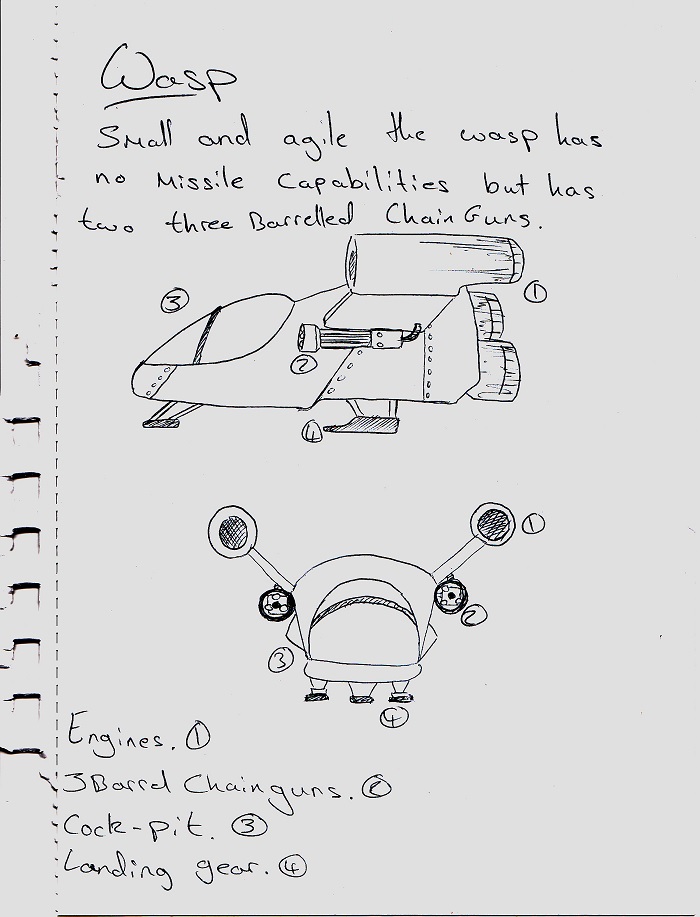 Wasp
Small and agile the wasp has
no Missile Capabilities but has
two three Barrelled Chain Guns.
1
3
2
4
1
2
3
4
Engines. 1
3 Barrel Chainguns. 2
Cock-pit. 3
Landing gear. 4